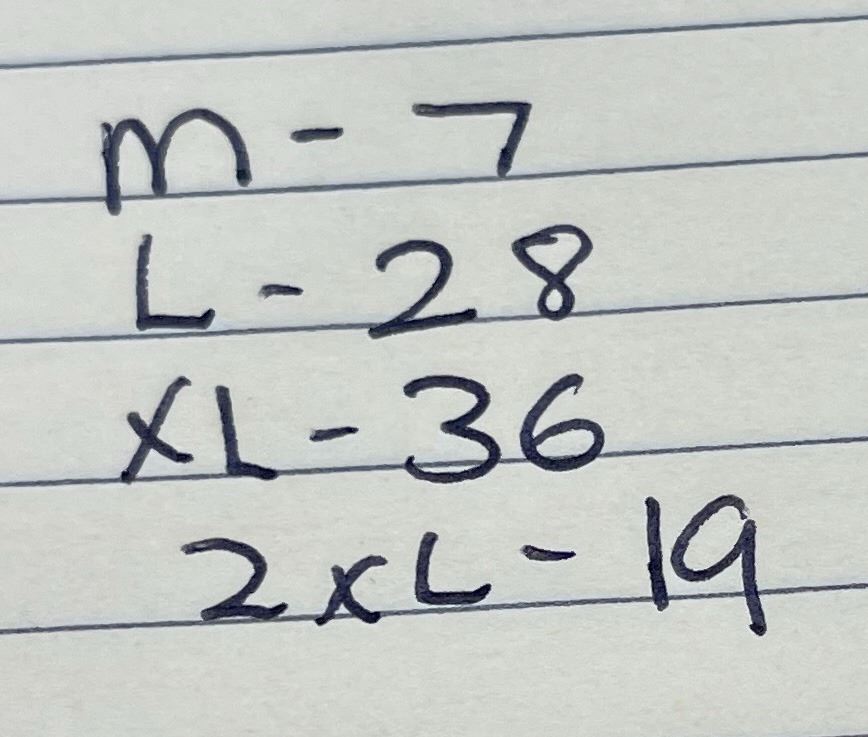 M - 7
L - 28
XL - 36
2XL - 19